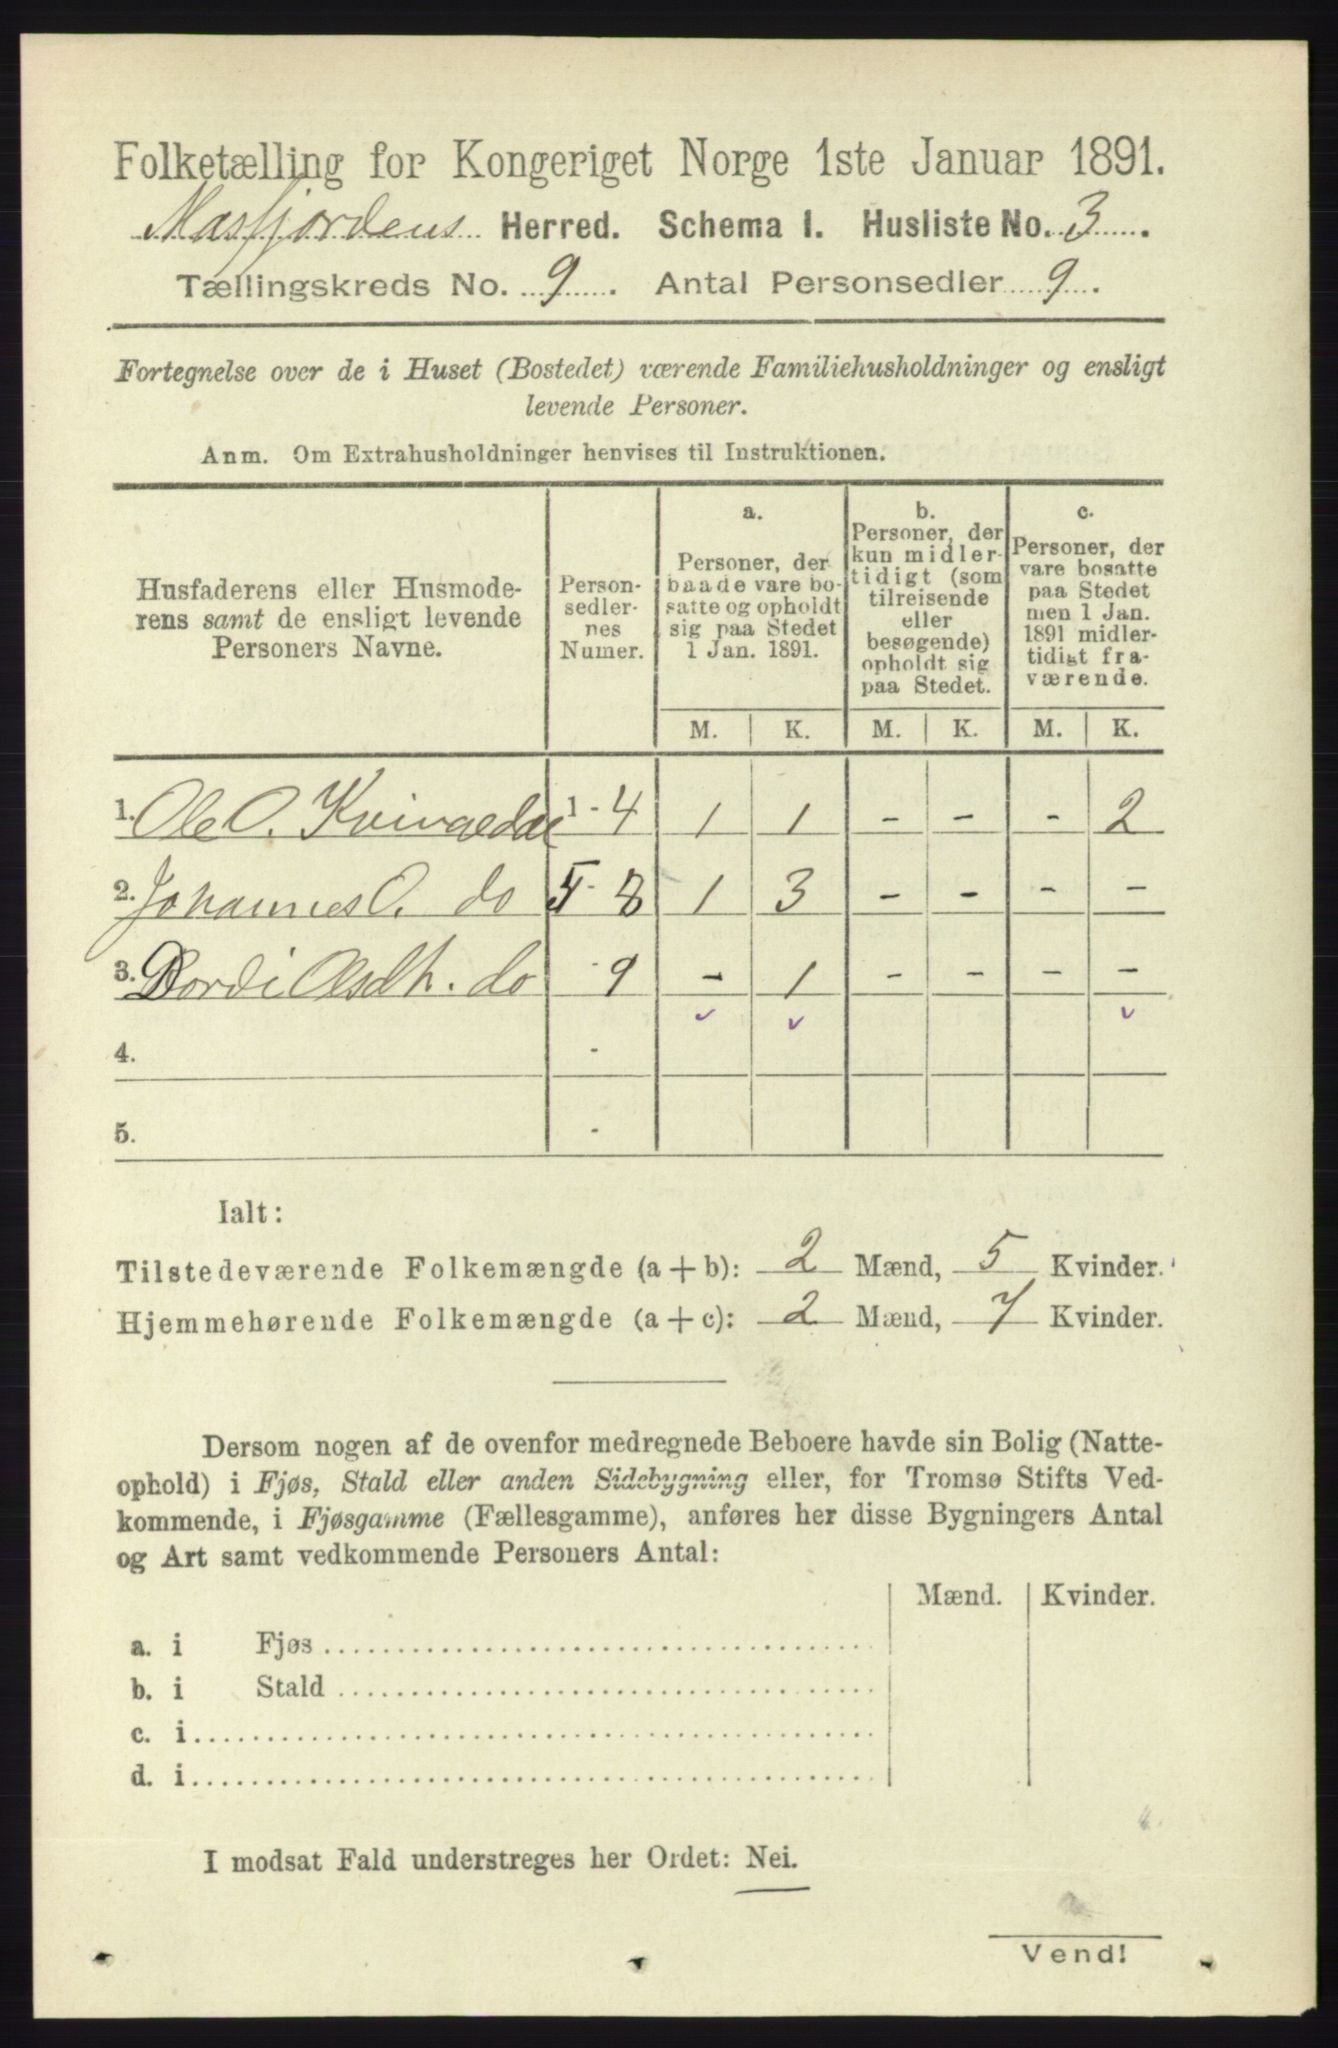 Folketælling for Kongeriget Norge 1ste Januar 1891.
Masfjordens Herred. Schema I. Husliste No. 3.
Tællingskreds No. 9. Antal Personsedler 9.
Fortegnelse over de i Huset (Bostedet) værende Familiehusholdninger og ensligt
levende Personer.
Anm. Om Extrahusholdninger henvises til Instruktionen.
Husfaderens eller Husmode-
rens samt de ensligt levende
Personers Navne.
Person-
sedler-
nes
Numer.
a.
Personer, der
baade vare bo-
satte og opholdt
sig paa Stedet
1 Jan. 1891.
b.
Personer, der
kun midler-
tidigt (som
tilreisende
eller
besøgende)
opholdt sig
paa Stedet.
c.
Personer, der
vare bosatte
paa Stedet
men 1 Jan.
1891 midler-
tidigt fra-
værende.
M. K. M. K. M. K.
1. Ole O. Kvingedal 1 - 4 1 1 - - - 2
2. Johannes O. do 5 - 8 1 3 - - - -
3. Dordi do - 9 - 1 - - - -
4. -
5. -
Ialt:
Tilstedeværende Folkemængde (a + b): 2 Mænd, 5 Kvinder.
Hjemmehørende Folkemængde (a + c): 2 Mænd, 7 Kvinder.
Dersom nogen af de ovenfor medregnede Beboere havde sin Bolig (Natte-
ophold) i Fjøs, Stald eller anden Sidebygning eller, for Tromsø Stifts Ved-
kommende, i Fjøsgamme (Fællesgamme), anføres her disse Bygningers Antal
og Art samt vedkommende Personers Antal:
Mænd. Kvinder.
a. i Fjøs
b. i Stald
c. i
d. i
I modsat Fald understreges her Ordet: Nei.
Vend!